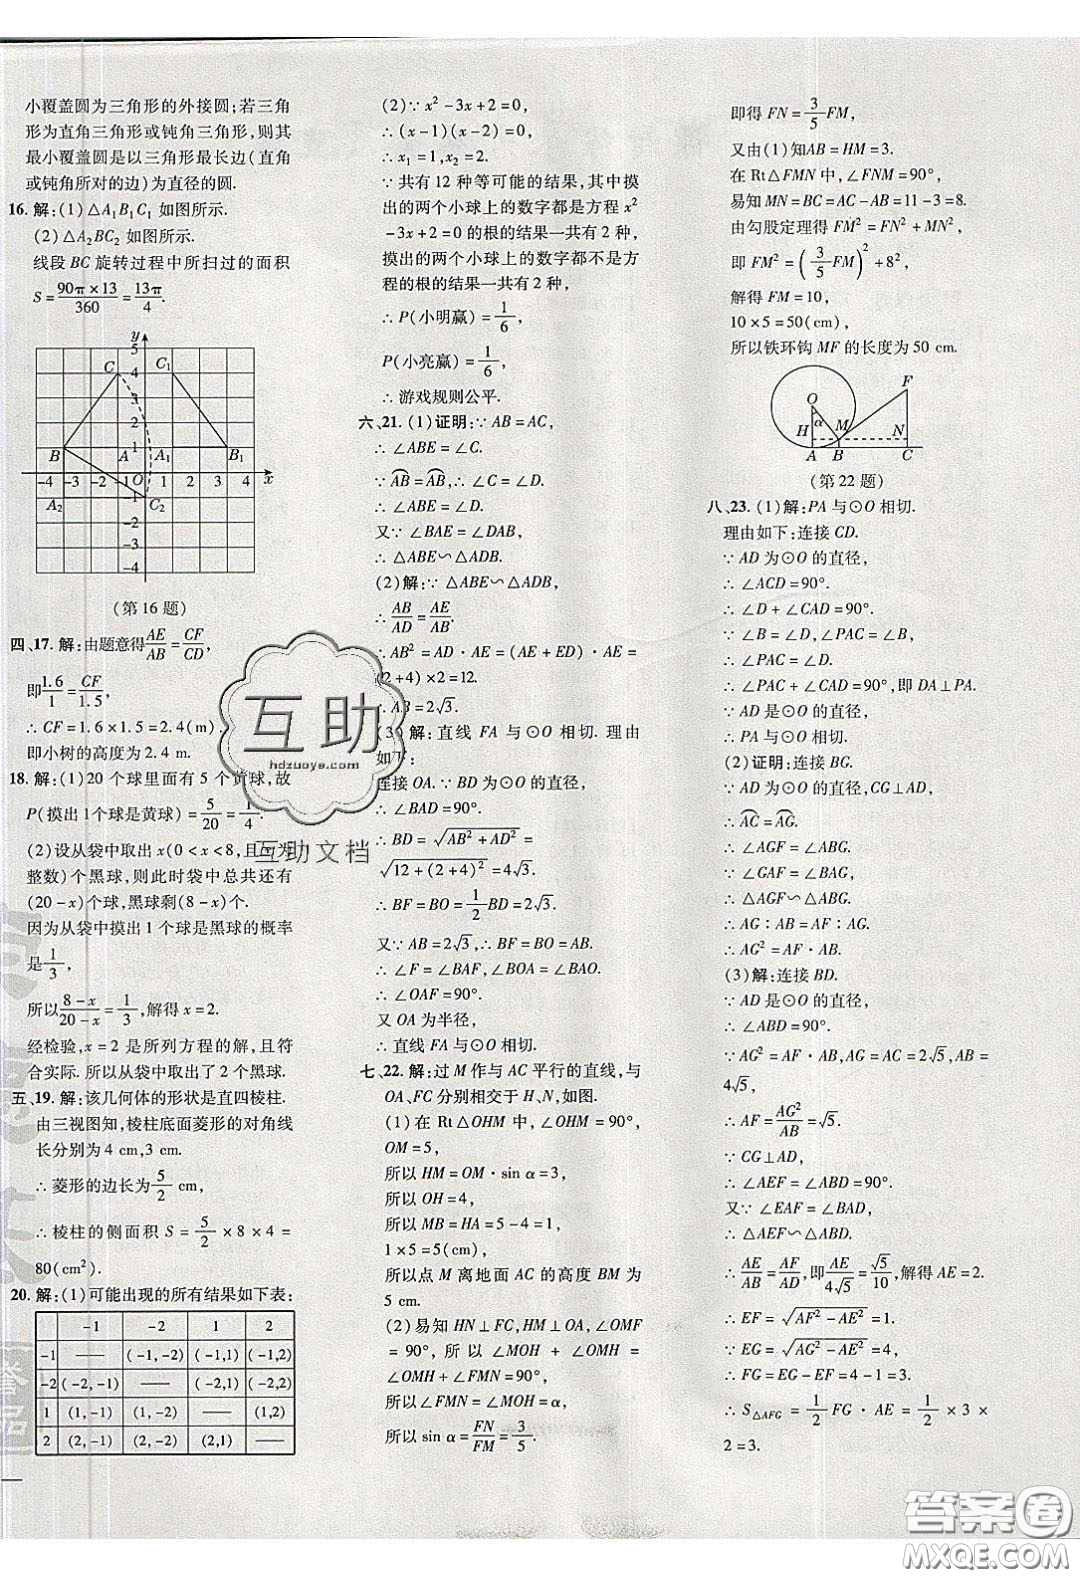 小覆盖圆为三角形的外接圆;若三角
形为直角三角形或钝角三角形,则其
最小覆盖圆是以三角形最长边(直角
或钝角所对的边)为直径的圆.
16. 解:(1)△A₁B₁C₁ 如图所示.
(2)△A₂BC₂ 如图所示.
线段 BC 旋转过程中所扫过的面积
S = 90π×13/360 = 13π/4.
(第 16 题)
四、17. 解:由题意得 AE/AB = CF/CD,
即 1.6/1 = CF/1.5,
∴ CF = 1.6 × 1.5 = 2.4(m).
即小树的高度为 2.4 m.
18. 解:(1)20 个球里面有 5 个黄球,故
P(摸出 1 个球是黄球) = 5/20 = 1/4.
(2)设从袋中取出 x(0 < x < 8,且 x 为
整数)个黑球,则此时袋中总共还有
(20 - x)个球,黑球剩(8 - x)个.
因为从袋中摸出 1 个球是黑球的概率
是 1/3,
所以 8-x/20-x = 1/3,解得 x = 2.
经检验,x = 2 是所列方程的解,且符
合实际. 所以从袋中取出了 2 个黑球.
五、19. 解:该几何体的形状是直四棱柱.
由三视图知,棱柱底面菱形的对角线
长分别为 4 cm,3 cm.
∴ 菱形的边长为 5/2 cm,
∴ 棱柱的侧面积 S = 5/2 × 8 × 4 =
80(cm²).
20. 解:(1)可能出现的所有结果如下表:
-1 -2 1 2
-1 —— (-1,-2) (-1,1) (-1,2)
-2 (-2,-1) —— (-2,1) (-2,2)
1 (1,-1) (1,-2) —— (1,2)
2 (2,-1) (2,-2) (2,1) ——
(2)∵ x² - 3x + 2 = 0,
∴ (x - 1)(x - 2) = 0,
∴ x₁ = 1,x₂ = 2.
∵ 共有 12 种等可能的结果,其中摸
出的两个小球上的数字都是方程 x²
- 3x + 2 = 0 的根的结果一共有 2 种,
摸出的两个小球上的数字都不是方
程的根的结果一共有 2 种,
∴ P(小明赢) = 1/6,
P(小亮赢) = 1/6,
∴ 游戏规则公平.
六、21. (1)证明:∵ AB = AC,
∴ ∠ABE = ∠C.
∵ AB = AB,∴ ∠C = ∠D.
∴ ∠ABE = ∠D.
又∵ ∠BAE = ∠DAB,
∴ △ABE∽△ADB.
(2)解:∵ △ABE∽△ADB,
∴ AB/AD = AE/AB.
∴ AB² = AD · AE = (AE + ED) · AE =
(2 + 4) × 2 = 12.
∴ AB = 2√3.
(3)解:直线 FA 与⊙O 相切. 理由
如下:
连接 OA. ∵ BD 为⊙O 的直径,
∴ ∠BAD = 90°.
∴ BD = √(AB² + AD²) =
√(12 + (2 + 4)²) = 4√3.
∴ BF = BO = 1/2 BD = 2√3.
又∵ AB = 2√3,∴ BF = BO = AB.
∴ ∠F = ∠BAF,∠BOA = ∠BAO.
∴ ∠OAF = 90°.
又 OA 为半径,
∴ 直线 FA 与⊙O 相切.
七、22. 解:过 M 作与 AC 平行的直线,与
OA、FC 分别相交于 H、N,如图.
(1)在 Rt△OHM 中,∠OHM = 90°,
OM = 5,
所以 HM = OM · sin α = 3,
所以 OH = 4,
所以 MB = HA = 5 - 4 = 1,
1 × 5 = 5(cm),
所以点 M 离地面 AC 的高度 BM 为
5 cm.
(2)易知 HN⊥FC,HM⊥OA,∠OMF
= 90°,所以∠MOH + ∠OMH =
∠OMH + ∠FMN = 90°,
所以∠FMN = ∠MOH = α,
所以 sin α = FN/FM = 3/5,
即得 FN = 3/5 FM,
又由(1)知AB = HM = 3.
在 Rt△FMN 中,∠FNM = 90°,
易知 MN = BC = AC - AB = 11 - 3 = 8.
由勾股定理得 FM² = FN² + MN²,
即 FM² = (3/5 FM)² + 8²,
解得 FM = 10,
10 × 5 = 50(cm),
所以铁环钩 MF 的长度为 50 cm.
(第 22 题)
八、23. (1)解:PA 与⊙O 相切.
理由如下:连接 CD.
∵ AD 为⊙O 的直径,
∴ ∠ACD = 90°.
∴ ∠D + ∠CAD = 90°.
∵ ∠B = ∠D,∠PAC = ∠B,
∴ ∠PAC = ∠D.
∴ ∠PAC + ∠CAD = 90°,即 DA⊥PA.
∵ AD 是⊙O 的直径,
∴ PA 与⊙O 相切.
(2)证明:连接 BG.
∵ AD 为⊙O 的直径,CG⊥AD,
∴ AC = AG.
∴ ∠AGF = ∠ABG.
∵ ∠GAF = ∠BAG,
∴ △AGF∽△ABG.
∴ AG : AB = AF : AG.
∴ AG² = AF · AB.
(3)解:连接 BD.
∵ AD 是⊙O 的直径,
∴ ∠ABD = 90°.
∵ AG² = AF · AB,AG = AC = 2√5,AB =
4√5,
∴ AF = AG²/AB = √5.
∵ CG⊥AD,
∴ ∠AEF = ∠ABD = 90°.
又∵ ∠EAF = ∠BAD,
∴ △AEF∽△ABD.
∴ AE/AB = AF/AD,即 AE/4√5 = √5/10,解得 AE = 2.
∴ EF = √(AF² - AE²) = 1.
∵ EG = √(AG² - AE²) = 4,
∴ FG = EG - EF = 4 - 1 = 3.
∴ S△AFG = 1/2 FG · AE = 1/2 × 3 ×
2 = 3.
互助
hdzuoye.com
互助文档
答案圈
MXQE.COM